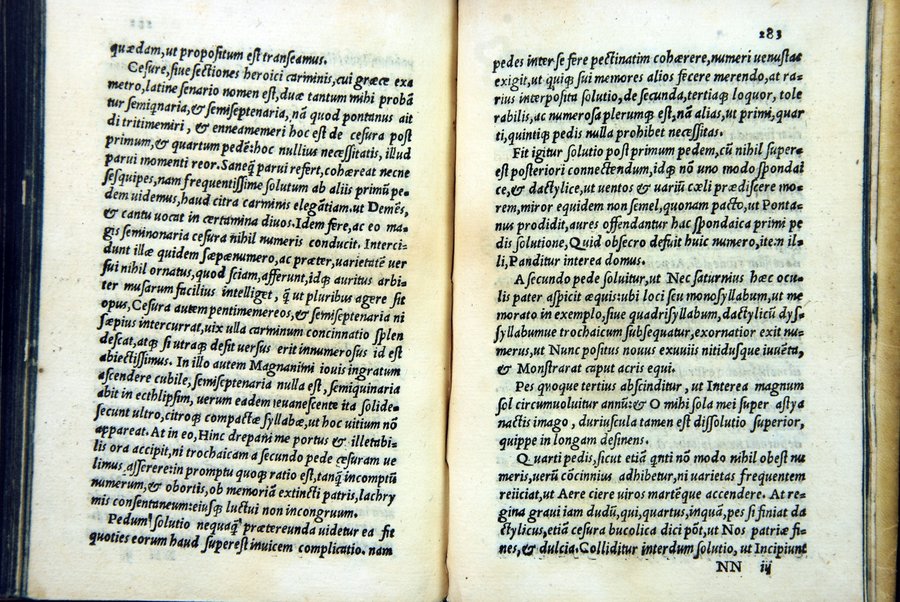 quædam, ut propositum est transeamus.
Cesure, siue sectiones heroici carminis, cui græce exa
metro, latine senario nomen est, duæ tantum mihi probã
tur semiqnaria, & semiseptenaria, nã quod pontanus ait
di tritimemiri, & enneamemeri hoc est de cesura post
primum, & quartum pedẽ: hoc nullius necessitatis, illud
parui momenti reor. Saneq̃ parui refert, cohæreat necne
sesquipes, nam frequentissime solutum ab aliis primũ pe-
dem uidemus, haud citra carminis elegãtiam. ut Demẽs,
& cantu uocat in certamina diuos. Idem fere, ac eo ma-
gis seminonaria cesura nihil numeris conducit. Interci-
dunt illæ quidem sæpe numero, ac præter, uarietatẽ uer
sui nihil ornatus, quod sciam, afferunt, idq; auritus arbi-
ter musarum facilius intelliget, q̃ ut pluribus agere sit
opus, Cesura autem pentimemereos, & semiseptenaria ni
sæpius intercurrat, uix ulla carminum concinnatio splen
descat, atq; si utraq; desit uersus erit innumerosus id est
abiectissimus. In illo autem Magnanimi iouis ingratum
ascendere cubile, semiseptenaria nulla est, semiquinaria
abit in ecthlipsim, uerum eadem euanescente ita solide-
secunt ultro, citroq; compactæ syllabæ, ut hoc uitium nõ
appareat. At in eo, Hinc drepani me portus & illetabi-
lis ora accipit, ni trochaicam a secundo pede cæsuram ue
limus asserere: in promptu quoq; ratio est, tanq̃ incomptũ
numerum, & obortis, ob memoriã extincti patris, lachry
mis consentaneum: eiusq; luctui non incongruum.
Pedum solutio nequaq̃ prætereunda uidetur ea fit
quoties eorum haud superest inuicem complicatio. nam
283
pedes inter se fere pectinatim cohærere, numeri uenustas
exigit, ut quiq; sui memores alios fecere merendo, at ra-
rius interposita solutio, de secunda, tertiaq; loquor, tole
rabilis, ac numerosa plerumq; est, nã alias, ut primi, quar
ti, quintiq; pedis nulla prohibet necessitas.
Fit igitur solutio post primum pedem, cũ nihil super-
est posteriori connectendum, idq; nõ uno modo spondai
ce, & dactylice, ut uentos & uariũ cæli prædiscere mo-
rem, miror equidem non semel, quonam pacto, ut Ponta-
nus prodidit, aures offendantur hac spondaica primi pe
dis solutione, Quid obsecro defuit huic numero, item il-
li, Panditur interea domus.
A secundo pede soluitur, ut Nec saturnius hæc ocu-
lis pater aspicit æquis: ubi loci seu monosyllabum, ut me
morato in exemplo, siue quadrisyllabum, dactylicũ dys-
syllabumue trochaicum subsequatur, exornatior exit nu-
merus, ut Nunc positus nouus exuuiis nitidusque iuuẽta,
& Monstrarat caput acris equi.
Pes quoque tertius abscinditur, ut Interea magnum
sol circumuoluitur annũ: & O mihi sola mei super astya
nactis imago, duriuscula tamen est dissolutio superior,
quippe in longam desinens.
Quarti pedis, sicut etiã qnti nõ modo nihil obest nu
meris, uerũ cõcinnius adhibetur, ni uarietas frequentem
reiiciat, ut Aere ciere uiros martẽque accendere. At re-
gina graui iam dudũ, qui, quartus, inquã, pes si finiat da
ctylicus, etiã cesura bucolica dici põt, ut Nos patriæ fi-
nes, & dulcia. Colliditur interdum solutio, ut Incipiunt
NN iij